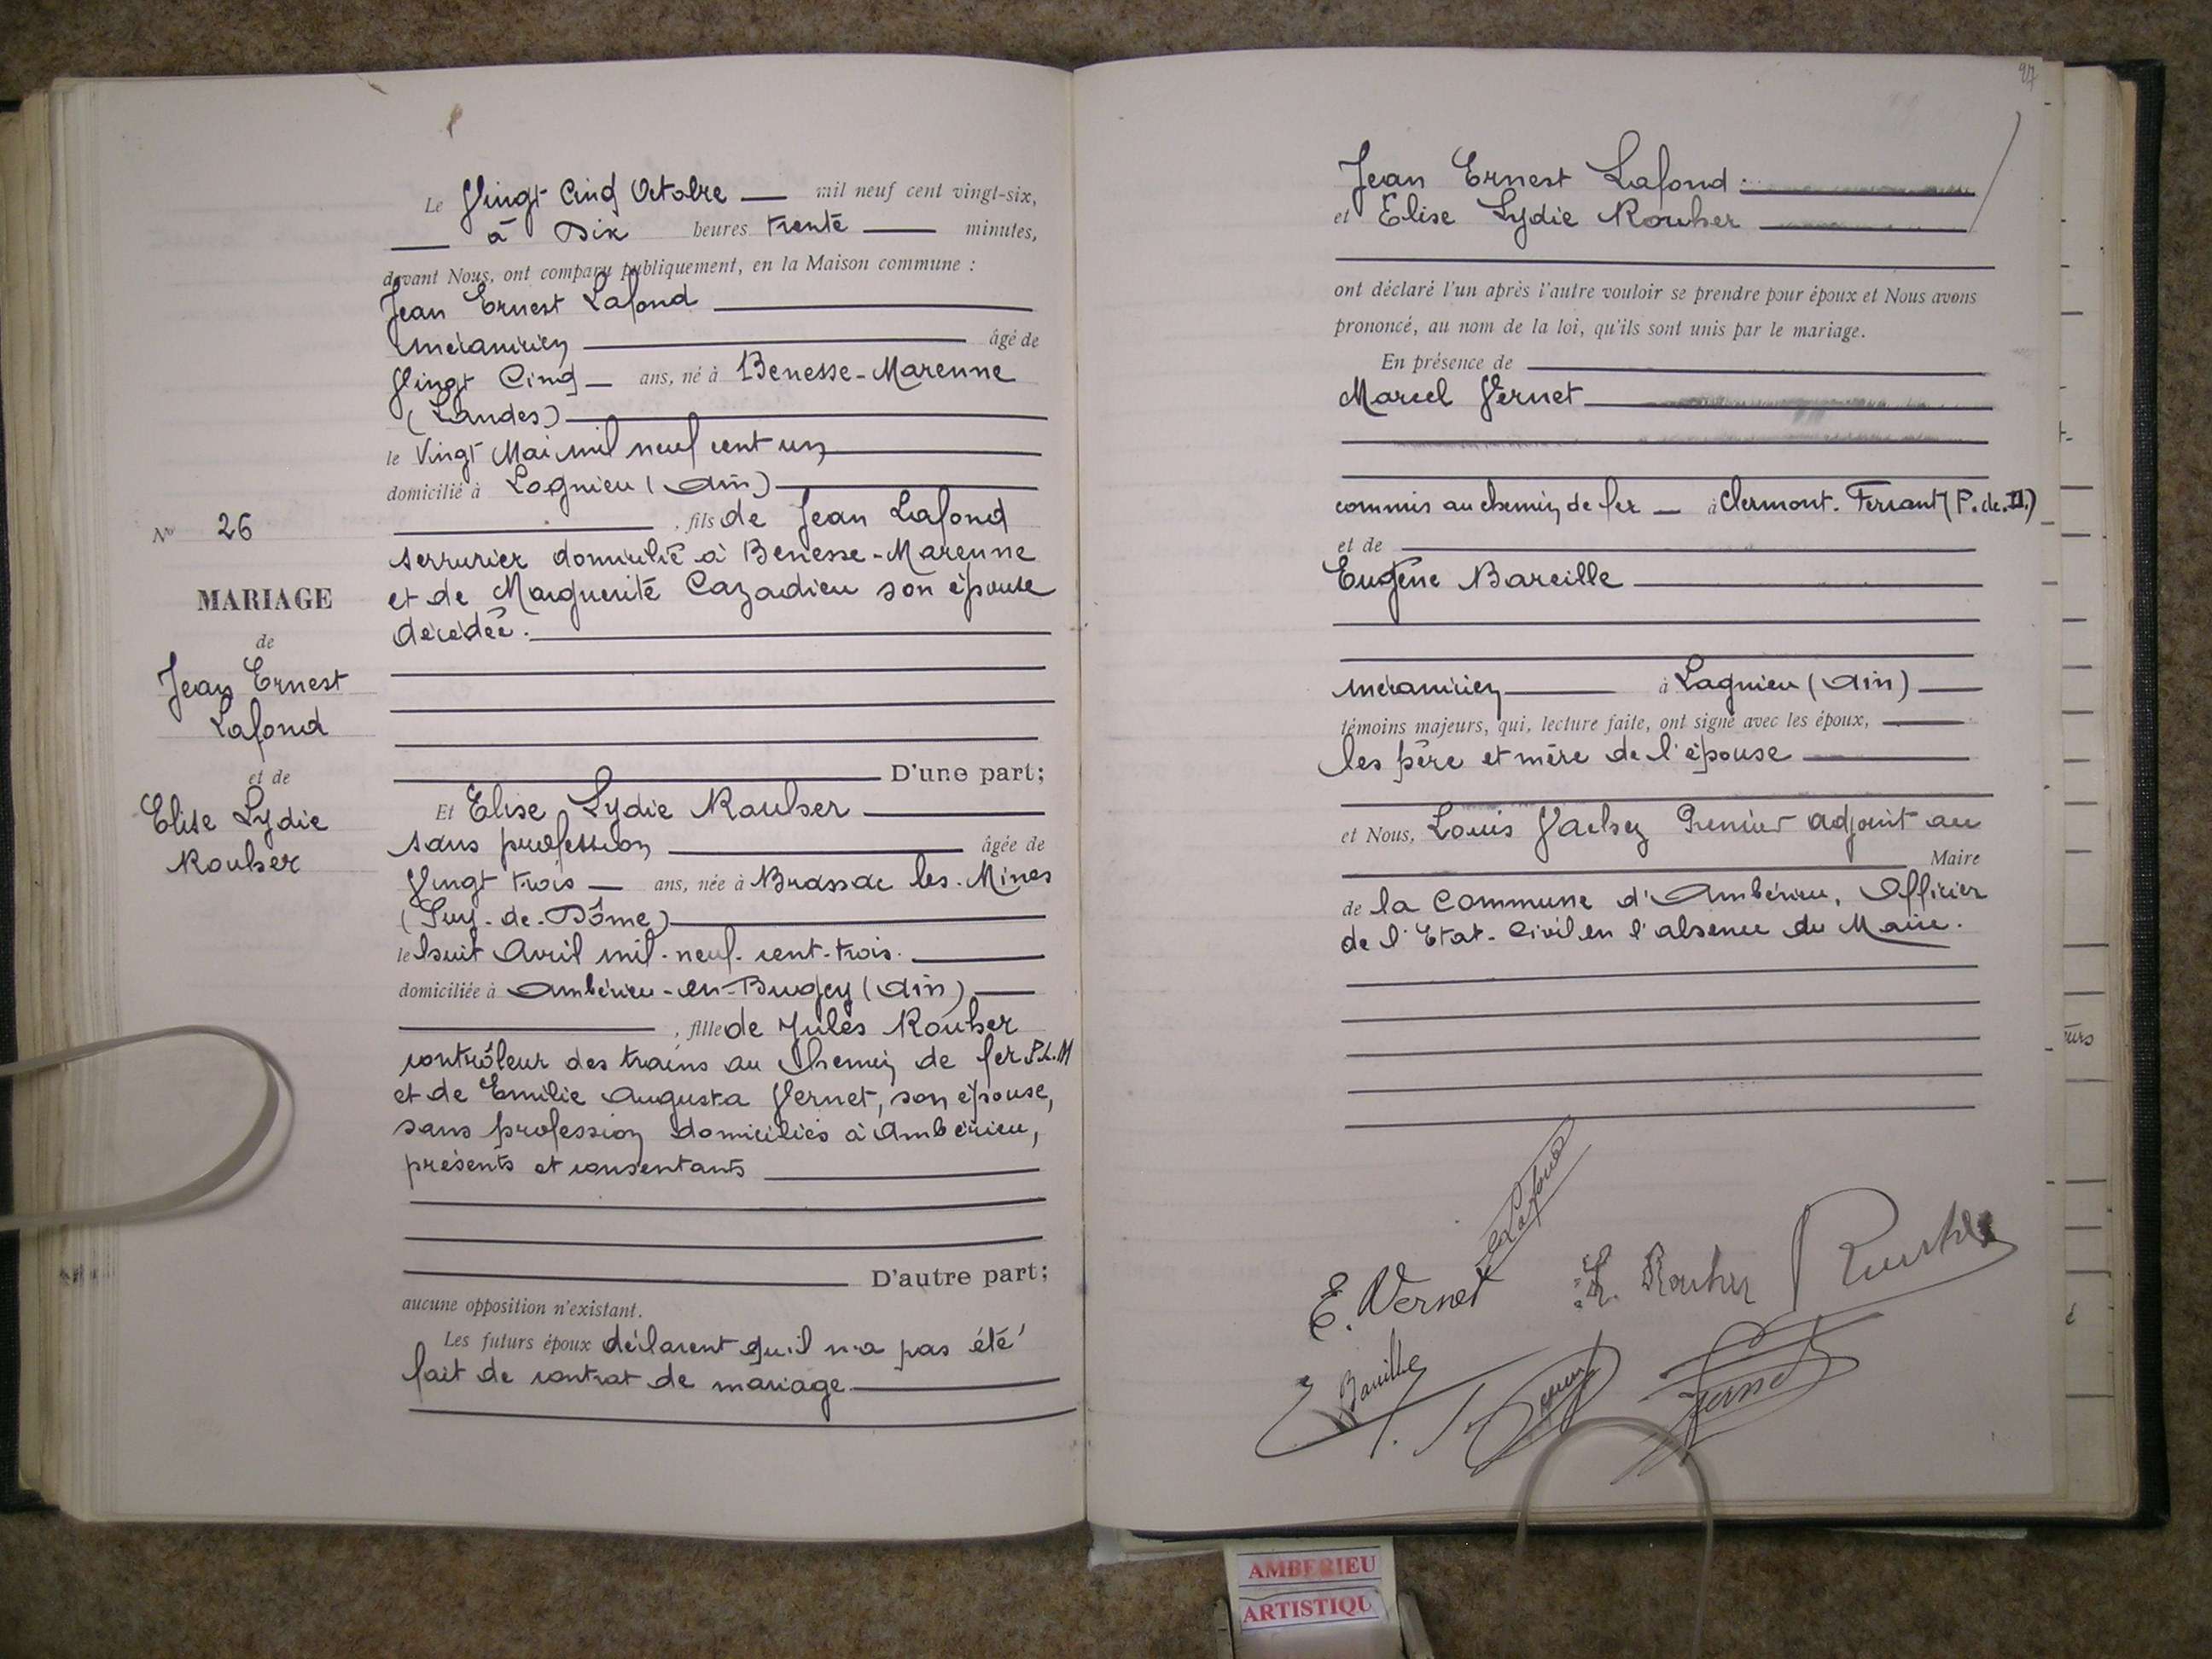 Le Vingt Cinq Octobre — mil neuf cent vingt-six,
— à Dix heures trente — minutes,
devant Nous, ont comparu publiquement, en la Maison commune :
Jean Ernest Lafond
mécanicien — âgé de
Vingt Cinq — ans, né à Benesse-Marenne
(Landes)
le Vingt Mai mil neuf cent un
domicilié à Lagnieu (Ain)
, fils de Jean Lafond
serrurier domicilié à Benesse-Marenne
et de Marguerite Cazadieu son épouse
décédée.
D'une part;
Et Elise Lydie Rouher
sans profession — âgée de
Vingt trois — ans, née à Brassac les-Mines
(Puy-de-Dôme)
le huit Avril mil-neuf-cent-trois.
domiciliée à Ambérieu-en-Bugey (Ain)
, fille de Jules Rouher
contrôleur des trains au Chemin de fer P.L.M
et de Emilie Augusta Vernet, son épouse,
sans profession domiciliés à Ambérieu,
présents et consentants
D'autre part;
aucune opposition n'existant.
Les futurs époux déclarent qu'il n'a pas été
fait de contrat de mariage
No 26
MARIAGE
de
Jean Ernest
Lafond
et de
Elise Lydie
Rouher
97
Jean Ernest Lafond.
et Elise Lydie Rouher
ont déclaré l'un après l'autre vouloir se prendre pour époux et Nous avons
prononcé, au nom de la loi, qu'ils sont unis par le mariage.
En présence de
Marcel Vernet
commis au chemin de fer — à Clermont-Ferrant (P.de.D.)
et de
Eugène Bareille
mécanicien — à Lagnieu (Ain)
témoins majeurs, qui, lecture faite, ont signé avec les époux,
les père et mère de l'épouse
et Nous, Louis Premier adjoint au
Maire
de la Commune d'Ambérieu, Officier
de l'Etat-Civil en l'absence du Maire.
Lafond
E. Vernet
L. Rouher
Rouher
Bareille
Vernet
AMBERIEU
ARTISTIQU